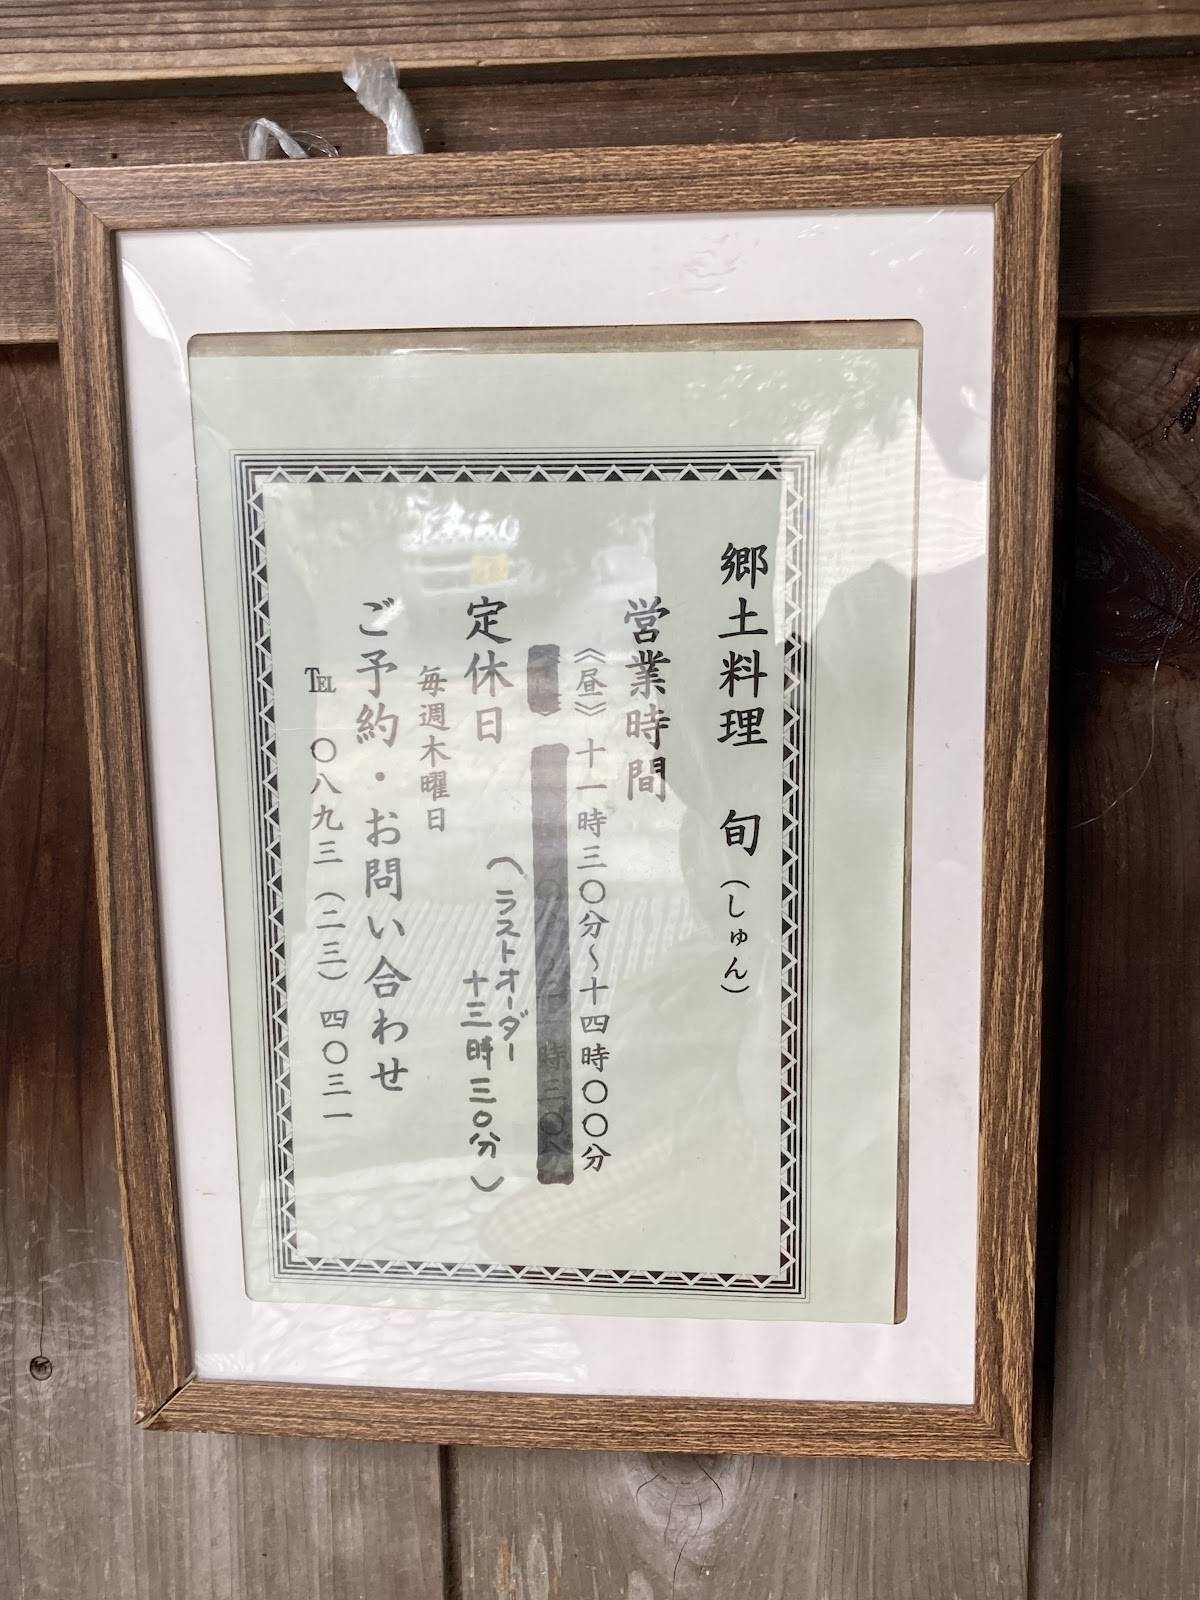 郷土料理 旬(しゅん)
営業時間
《昼》十一時三〇分～十四時〇〇分
時三〇分
(ラストオーダー
十三時三〇分)
定休日
毎週木曜日
ご予約・お問い合わせ
TEL 〇八九三(二三)四〇三一